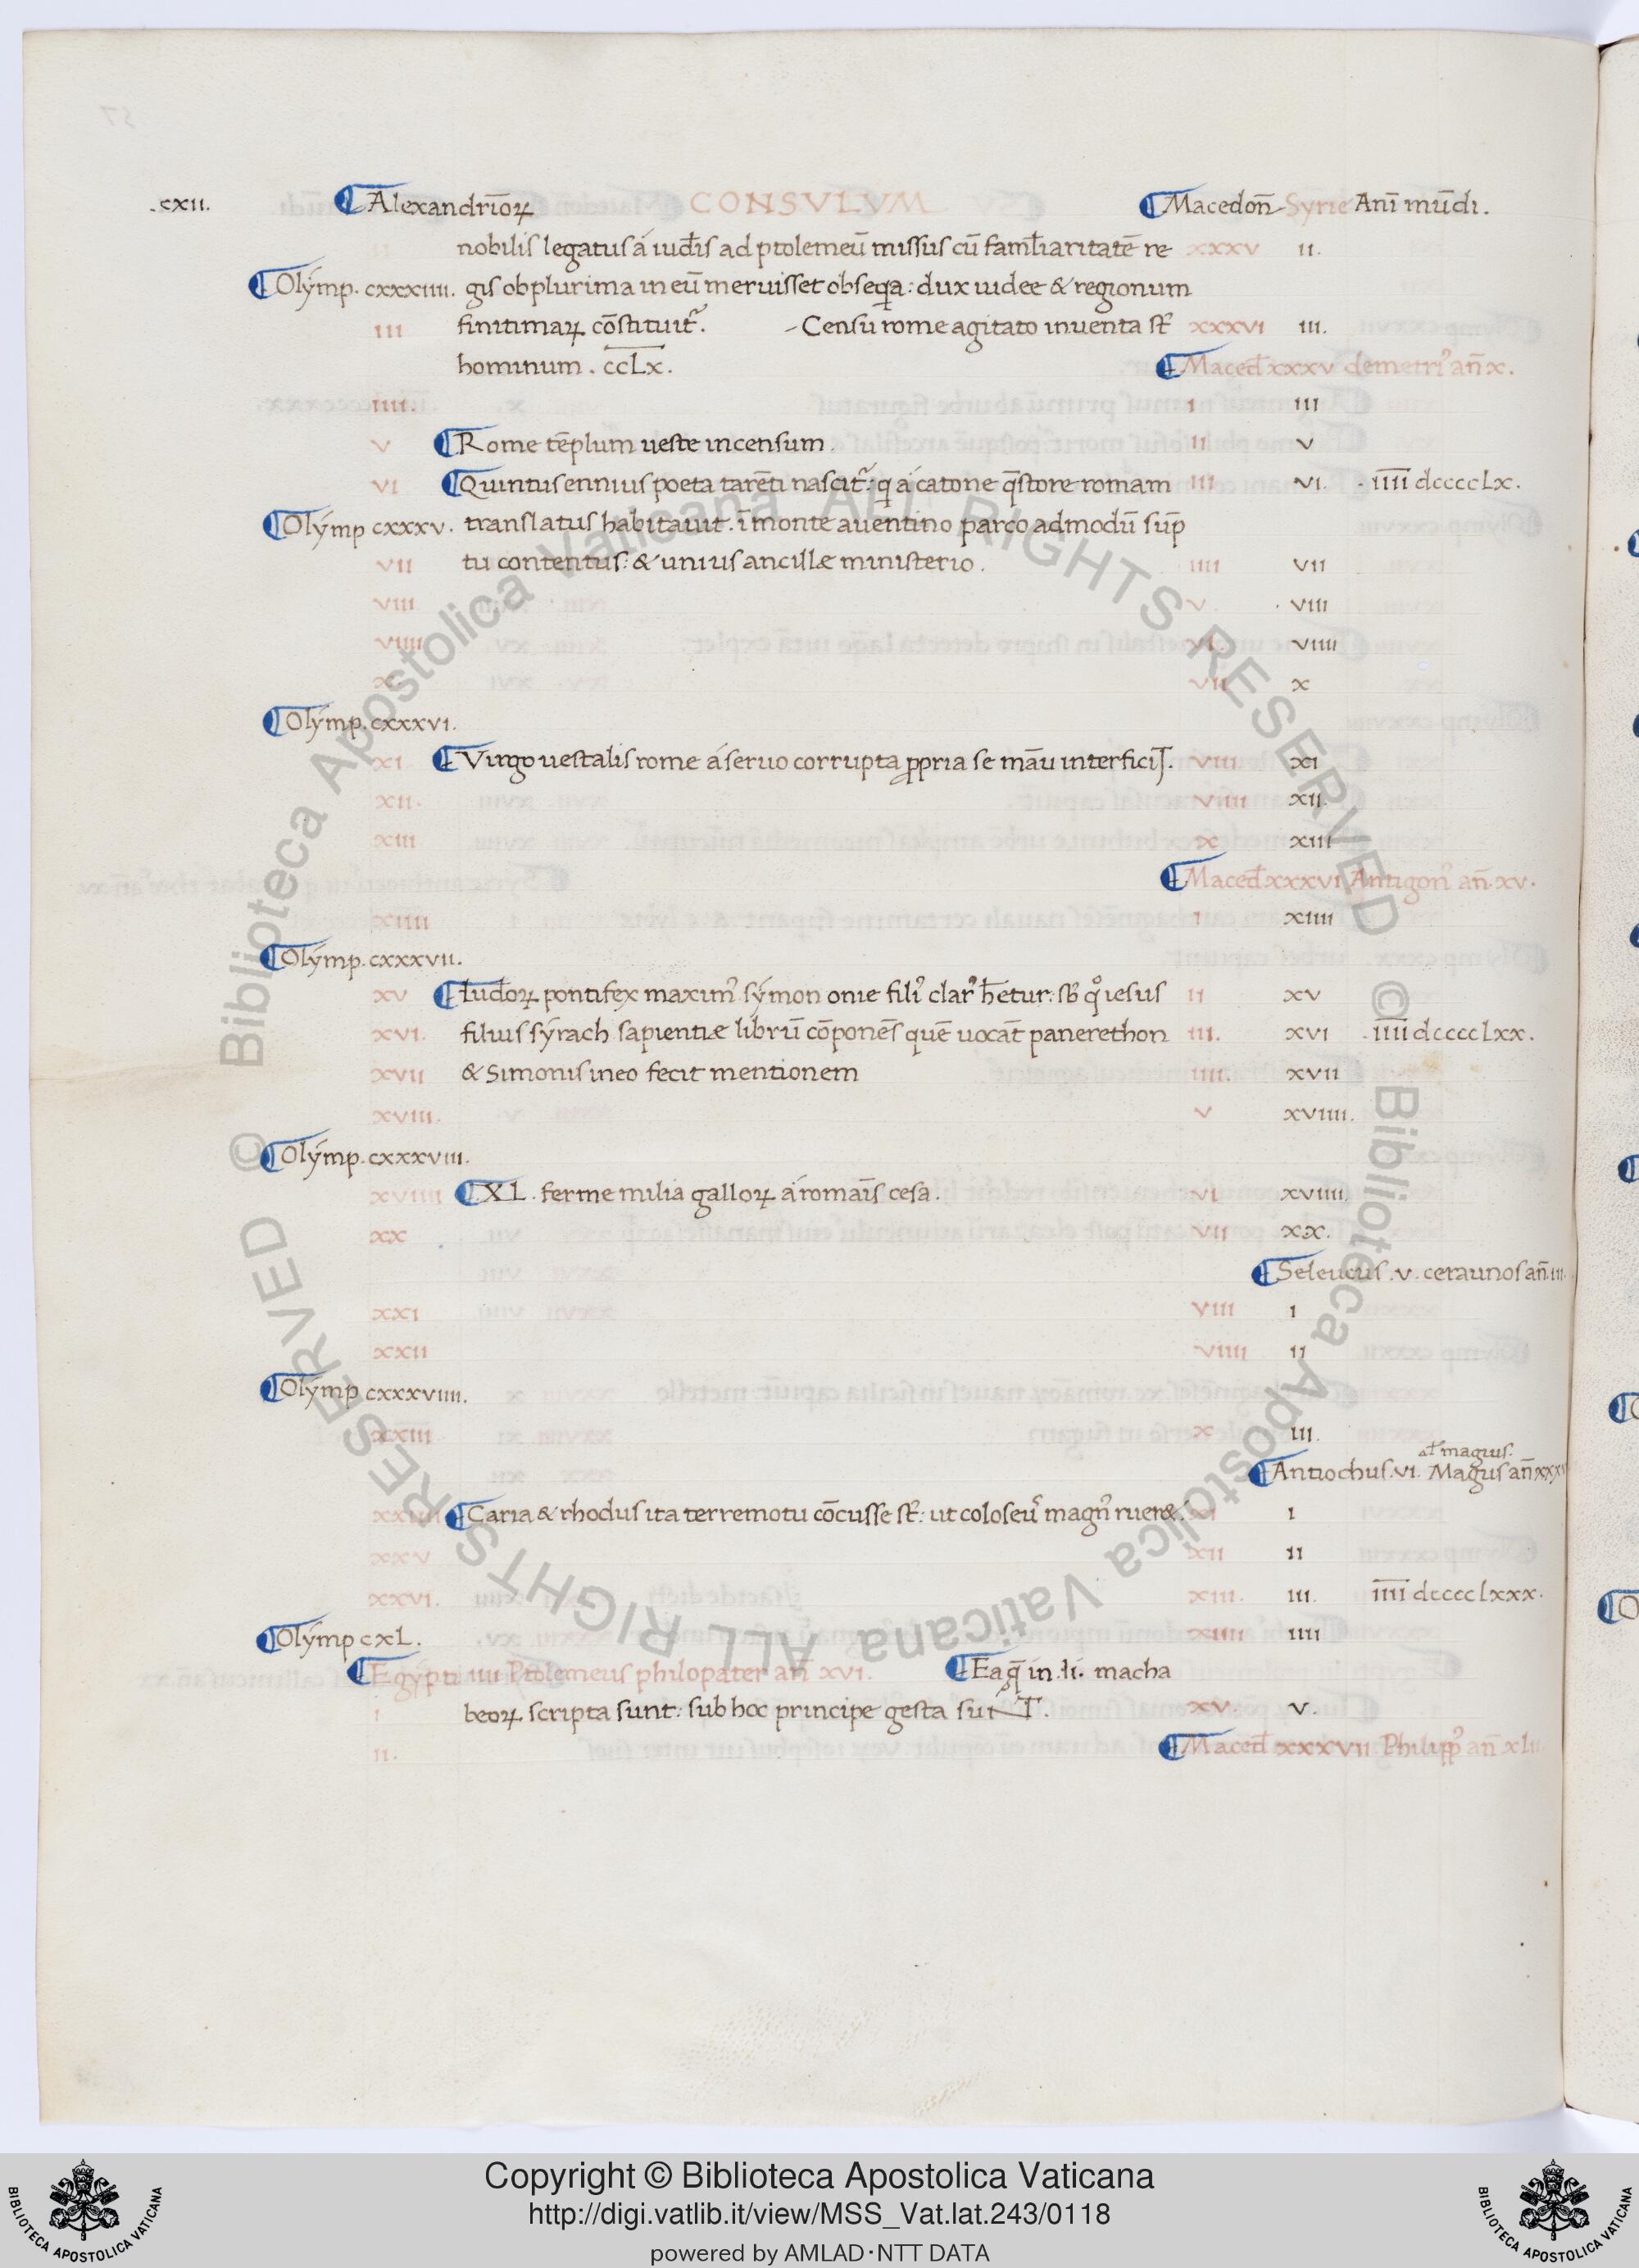 .cxii. Alexandrīoꝝ CONSVLVM Macedon̄ Syrie Ani mūdi.
nobilis legatus á iud̄is ad ptolemeū missus cū famil̄iaritatē re xxxv ii.
Olýmp. cxxxiiii. gis ob plurima in eū meruisset obseqia: dux iudee & regionum
iii finitimaꝝ cōstituit᷑. -Censu rome agitato inuenta st̄ xxxvi iii.
hominum . ccLx. Maced̄ xxxv demetri᾽ an̄ x.
iiii. i iii
v Rome tēplum ueste incensum. ii v
vi Quintus ennius poeta tarēti nascit᷑: q á catone q̄store romam iii vi. . īīīī dccccLx.
Olýmp cxxxv. translatus habitauit. ī monte auentino parco admodū sūp
vii tu contentus: & unius ancillæ ministerio. iiii vii
viii v . viii
viiii vi viiii
x vii x
Olýmp. cxxxvi.
xi Virgo uestalis rome á seruo corrupta ꝓpria se manū interficiT. viii xi
xii. viiii xii.
xiii x xiii
Maced̄ xxxvi Antigon᾽ an̄. xv.
xiiii i xiiii
Olýmp. cxxxvii.
xv Iud̄oꝝ pontifex maxim᾽ sýmon onie fili᾽ clar᾽ h̄etur: sb̄ qͦ iesus ii xv
xvi. filius sýrach sapientiæ librū cōponēs quē uocāt panerethon iii. xvi . īīīī dccccLxx.
xvii & Simonis in eo fecit mentionem iiii. xvii
xviii. v xviiii.
Olýmp. cxxxviii.
xviiii .XL. ferme milia galloꝝ á romaīs cesa. vi xviiii.
xx vii xx.
Seleucus .v. ceraunos an̄. iii.
xxi viii i
xxii viiii ii
Olýmp cxxxviiii.
xxiii x iii.
al̄ magus.
Antiochus. vi. Magus an̄
xxiiii Caria & rhodus ita terremotu cōcusse st̄: ut coloseu᾽ magn᾽ ruer&. xi i
xxv xii ii
xxvi. xiii. iii. īīīī dcccclxxx.
Olýmp cxL. xiiii iiii
Egypti iiii Ptolemeus philopater an̄ xvi. Ea q̄ in .ii. macha
i beoꝝ scripta sunt: sub hoc principe gesta sunT. xv. v.
ii. Maced̄ xxxvii Philipp᾽ an̄
© Biblioteca Apostolica Vaticana ALL RIGHTS RESERVED
© Biblioteca Apostolica Vaticana ALL RIGHTS RESERVED
Copyright © Biblioteca Apostolica Vaticana
http://digi.vatlib.it/view/MSS_Vat.lat.243/0118
powered by AMLAD・NTT DATA
BIBLIOTECA APOSTOLICA VATICANA
BIBLIOTECA APOSTOLICA VATICANA